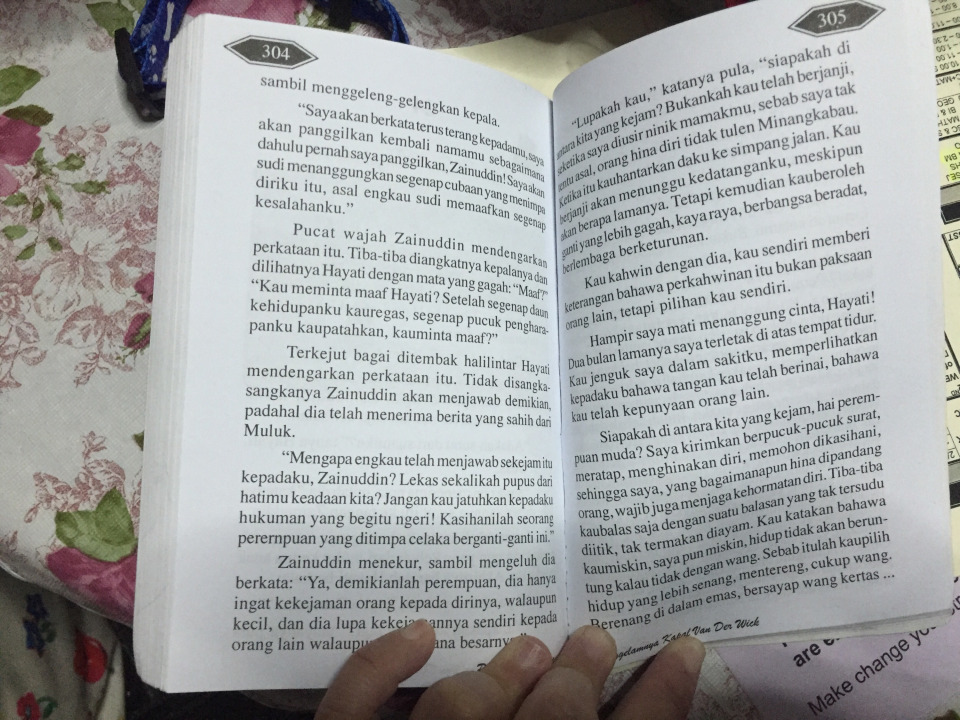 304
sambil menggeleng-gelengkan kepala.
“Saya akan berkata terus terang kepadamu, saya
akan panggilkan kembali namamu sebagaimana
dahulu pernah saya panggilkan, Zainuddin! Saya akan
sudi menanggungkan segenap cubaan yang menimpa
diriku itu, asal engkau sudi memaafkan segenap
kesalahanku.”
Pucat wajah Zainuddin mendengarkan
perkataan itu. Tiba-tiba diangkatnya kepalanya dan
dilihatnya Hayati dengan mata yang gagah: “Maaf?”
“Kau meminta maaf Hayati? Setelah segenap daun
kehidupanku kauregas, segenap pucuk penghara-
panku kaupatahkan, kauminta maaf?”
Terkejut bagai ditembak halilintar Hayati
mendengarkan perkataan itu. Tidak disangka-
sangkanya Zainuddin akan menjawab demikian,
padahal dia telah menerima berita yang sahih dari
Muluk.
“Mengapa engkau telah menjawab sekejam itu
kepadaku, Zainuddin? Lekas sekalikah pupus dari
hatimu keadaan kita? Jangan kau jatuhkan kepadaku
hukuman yang begitu ngeri! Kasihanilah seorang
perernpuan yang ditimpa celaka berganti-ganti ini.”
Zainuddin menekur, sambil mengeluh dia
berkata: “Ya, demikianlah perempuan, dia hanya
ingat kekejaman orang kepada dirinya, walaupun
kecil, dan dia lupa sendiri kepada
orang lain besarnya.”
305
“Lupakah kau,” katanya pula, “siapakah di
antara kita yang kejam? Bukankah kau telah berjanji,
seketika saya diusir ninik mamakmu, sebab saya tak
tentu asal, orang hina diri tidak tulen Minangkabau.
Ketika itu kauhantarkan daku ke simpang jalan. Kau
berjanji akan menunggu kedatanganku, meskipun
akan berapa lamanya. Tetapi kemudian kauberoleh
ganti yang lebih gagah, kaya raya, berbangsa beradat,
berlembaga berketurunan.
Kau kahwin dengan dia, kau sendiri memberi
keterangan bahawa perkahwinan itu bukan paksaan
orang lain, tetapi pilihan kau sendiri.
Hampir saya mati menanggung cinta, Hayati!
Dua bulan lamanya saya terletak di atas tempat tidur.
Kau jenguk saya dalam sakitku, memperlihatkan
kepadaku bahawa tangan kau telah berinai, bahawa
kau telah kepunyaan orang lain.
Siapakah di antara kita yang kejam, hai perem-
puan muda? Saya kirimkan berpucuk-pucuk surat,
meratap, menghinakan diri, memohon dikasihani,
sehingga saya, yang bagaimanapun hina dipandang
orang, wajib juga menjaga kehormatan diri. Tiba-tiba
kaubalas saja dengan suatu balasan yang tak tersudu
diitik, tak termakan diayam. Kau katakan bahawa
kaumiskin, saya pun miskin, hidup tidak akan berun-
tung kalau tidak dengan wang. Sebab itulah kaupilih
hidup yang lebih senang, mentereng, cukup wang.
Berenang di dalam emas, bersayap wang kertas ...
Kapal Van Der Wick
are
Make change